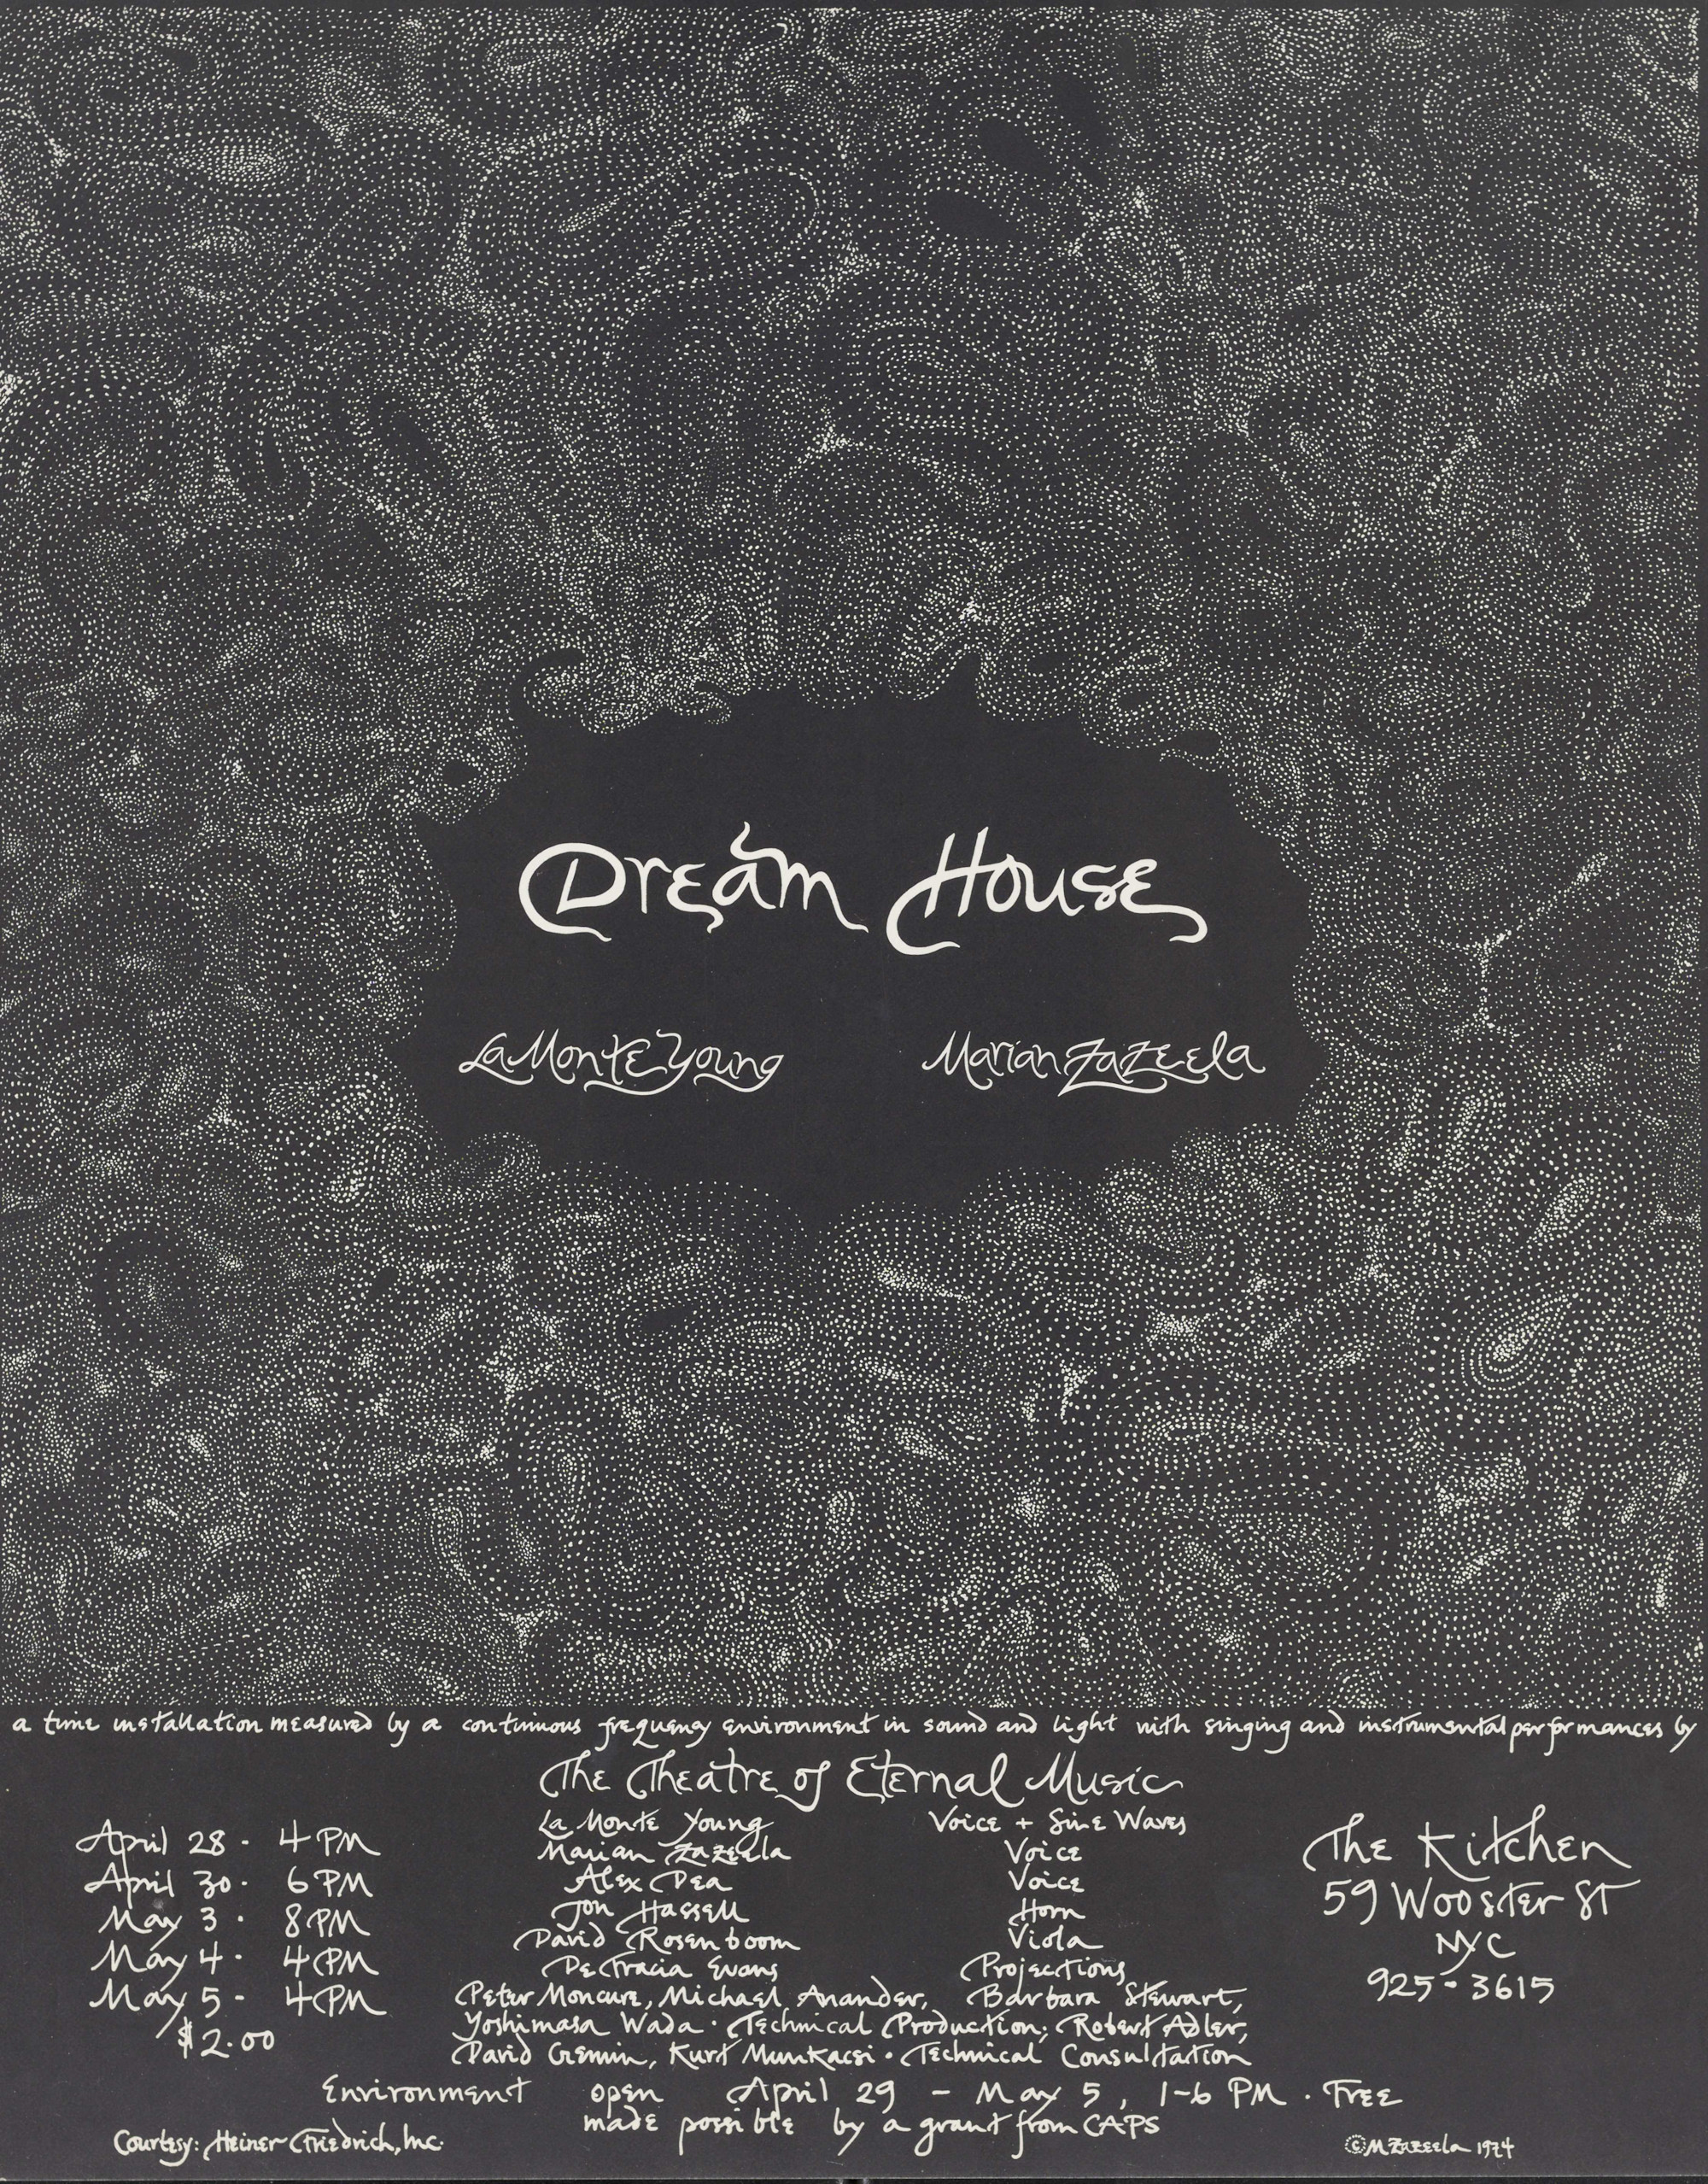 Dream House
La Monte Young Marian Zazeela
a time installation measured by a continuous frequency environment in sound and light with singing and instrumental performances by
The Theatre of Eternal Music
La Monte Young Voice + Sine Waves
Marian Zazeela Voice
Alex Dea Voice
Jon Hassell Horn
David Rosenboom Viola
De Fracia Evans Projections
Peter Moncure, Michael Anander, Barbara Stewart,
Yoshimasa Wada · Technical Production; Robert Adler,
David Gemin, Kurt Munkacsi · Technical Consultation
April 28 - 4 PM
April 30 · 6 PM
May 3 · 8 PM
May 4 - 4 PM
May 5 - 4 PM
$2.00
The Kitchen
59 Wooster St
NYC
925-3615
Environment open April 29 - May 5, 1-6 PM · Free
made possible by a grant from CAPS
Courtesy: Heiner Friedrich, Inc.
© M Zazeela 1974